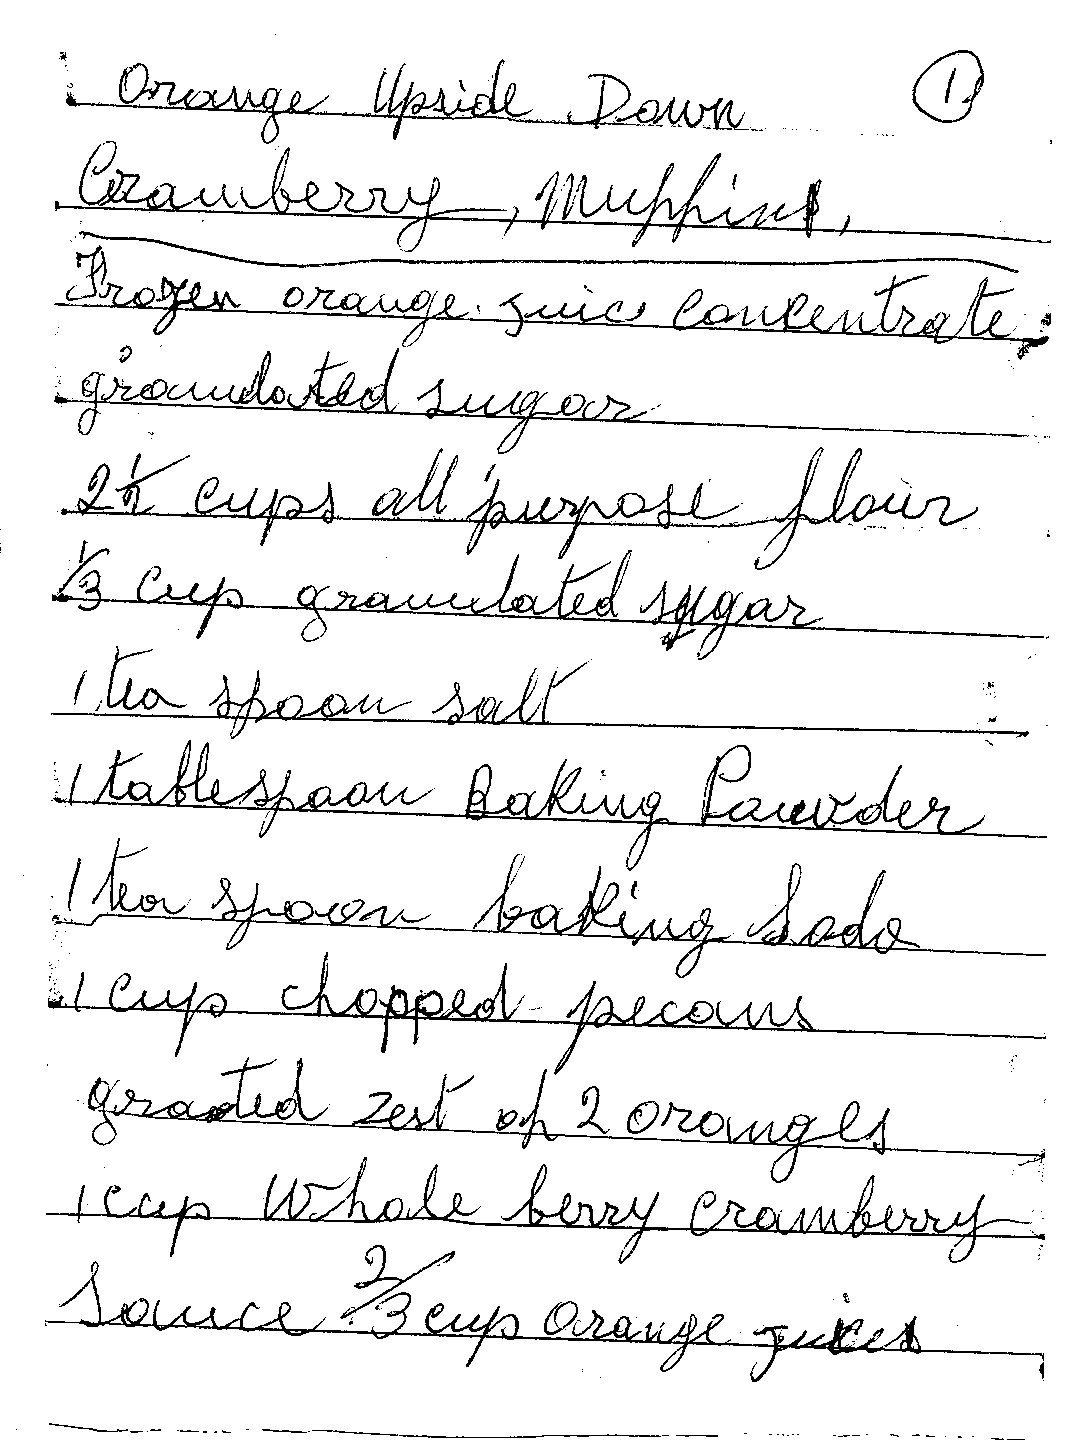 Orange Upside Down ①
Cramberry, Muffins,
Frozen orange juice concentrate,
granulated sugar
2 1/2 cups all purpose flour
1/3 cup granulated sugar
1 tea spoon salt
1 tablespoon Baking Powder
1 tea spoon baking Soda
1 cup chopped pecans
grated zest of 2 oranges
1 cup Whole berry cramberry
Sauce 2/3 cup orange juices